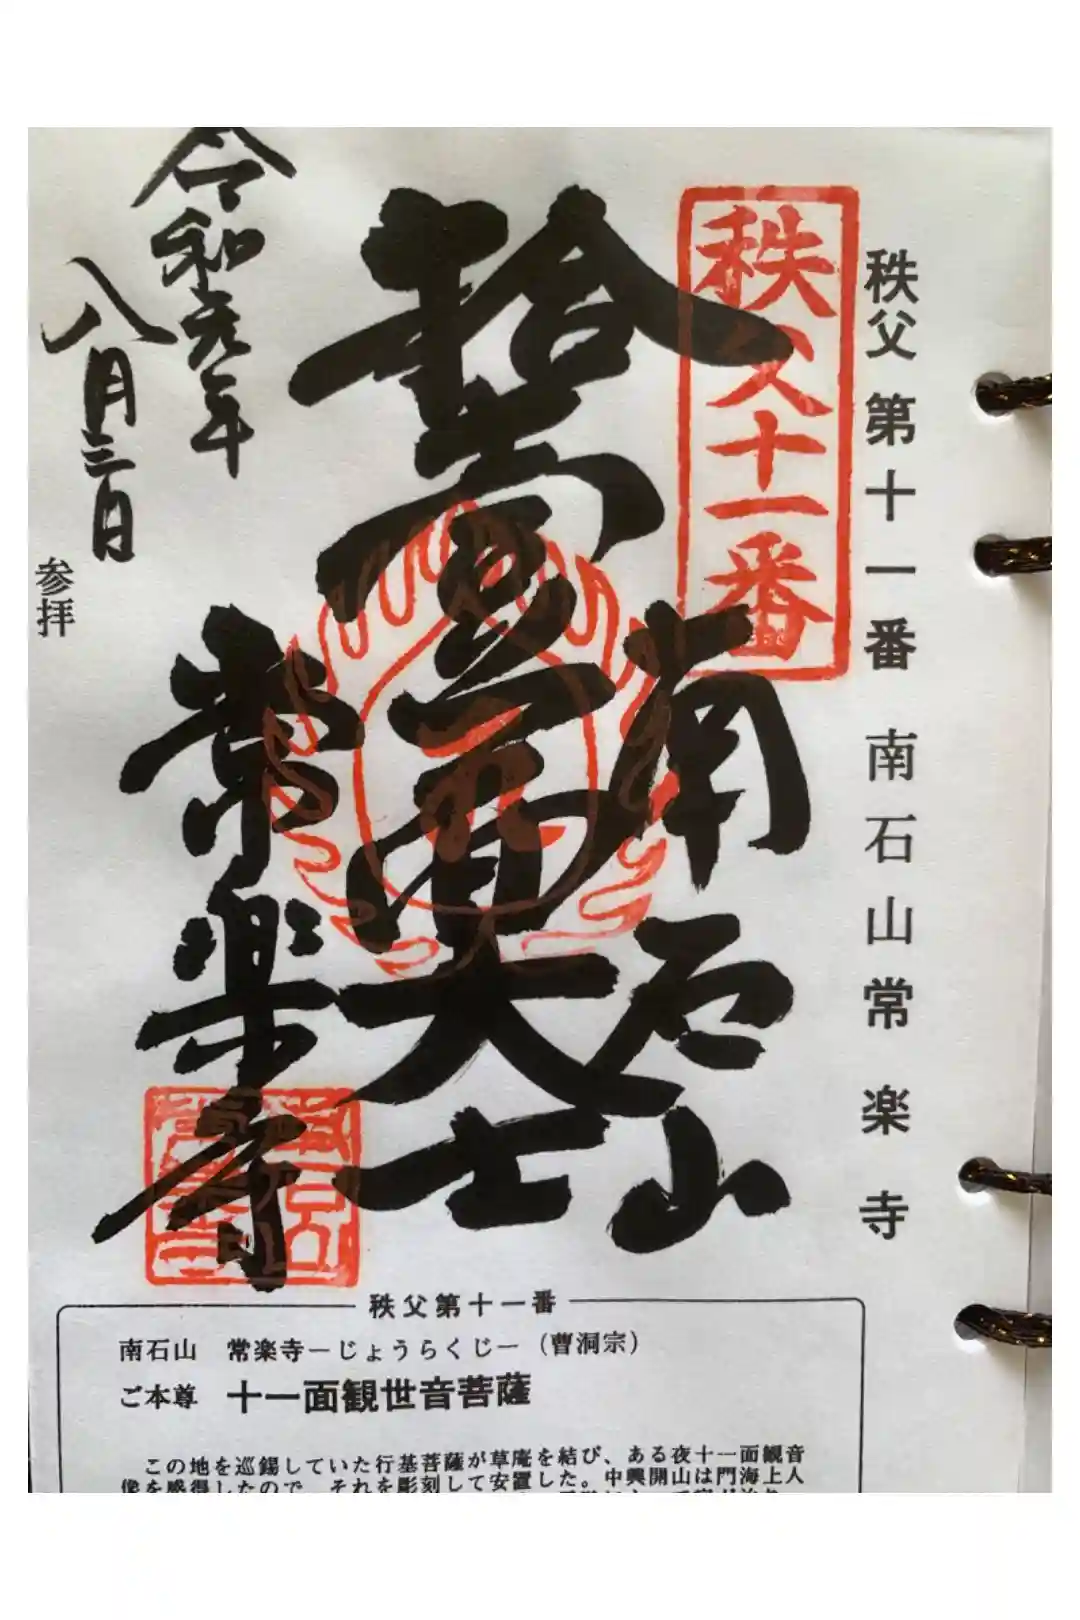 秩父第十一番 南石山常楽寺
秩父十一番
南石山
拾壹面大士
常楽寺
令和元年
八月三日
参拝
秩父第十一番
南石山 常楽寺―じょうらくじ―(曹洞宗)
ご本尊 十一面観世音菩薩
この地を巡錫していた行基菩薩が草庵を結び、ある夜十一面観音
像を感得したので、それを彫刻して安置した。中興開山は門海上人